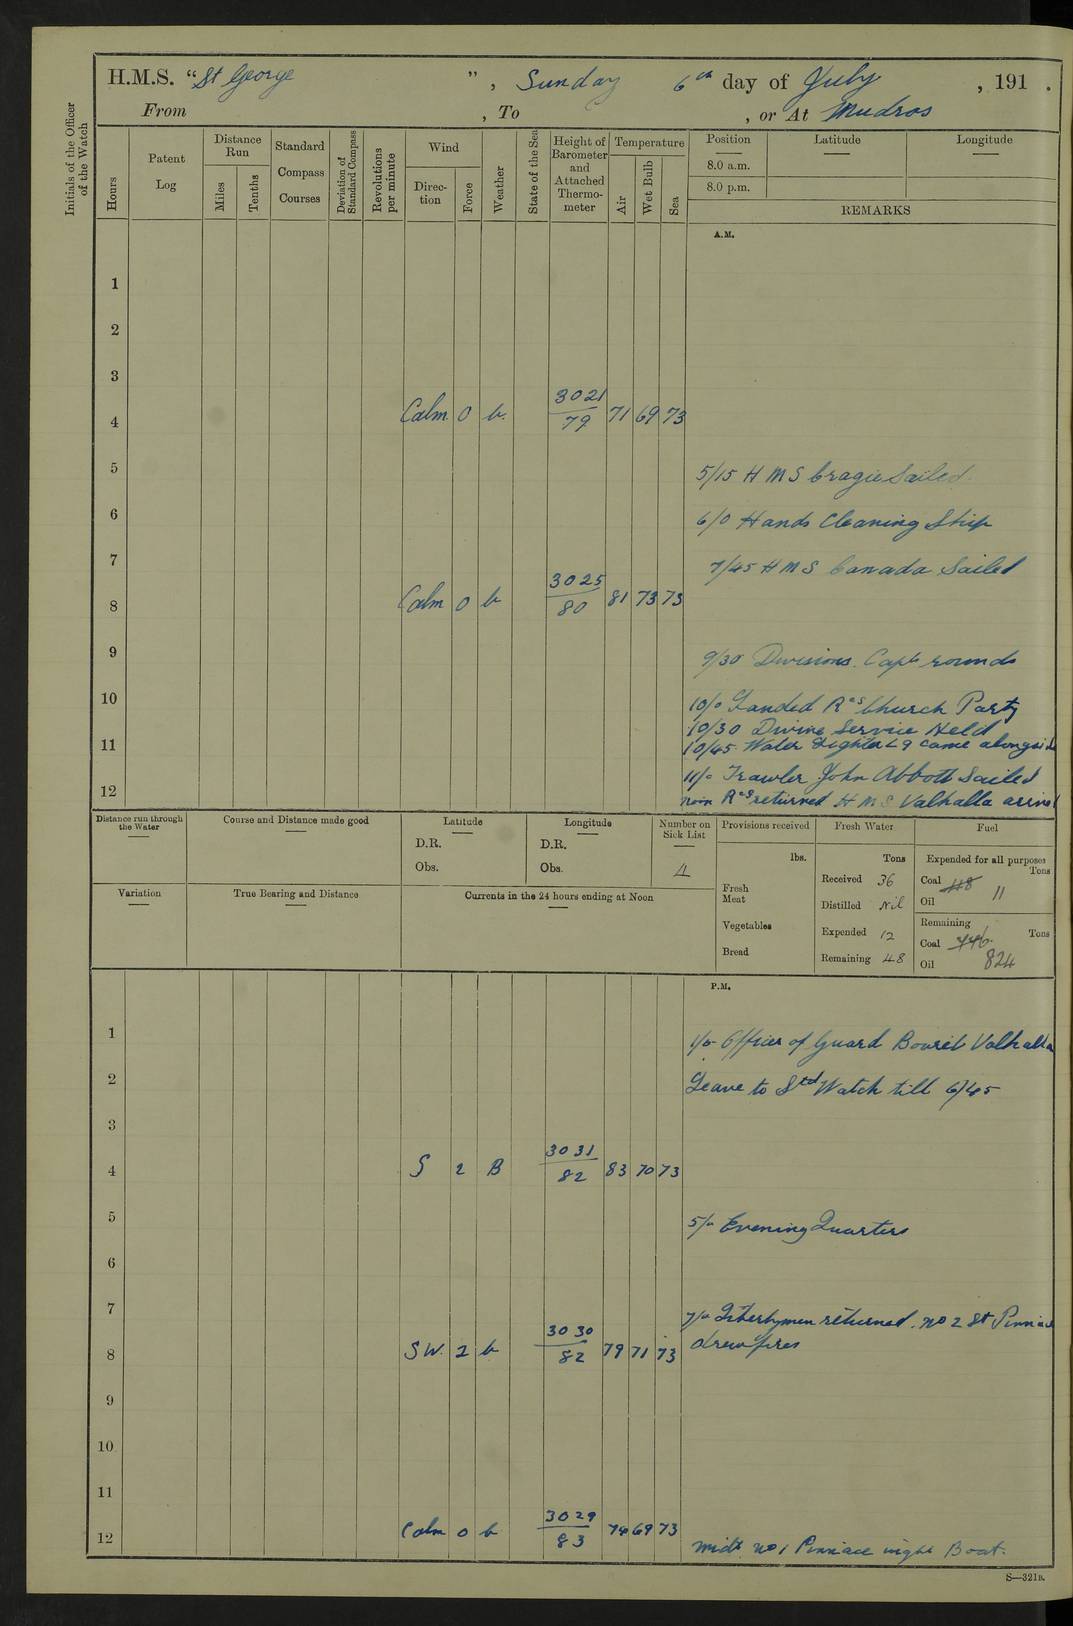 H.M.S. "St George", Sunday 6th day of July, 191 .
From , To , or At Mudros
Initials of the Officer of the Watch
Hours
Patent Log
Distance Run
Miles
Tenths
Standard Compass Courses
Deviation of Standard Compass
Revolutions per minute
Wind
Direction
Force
Weather
State of the Sea
Height of Barometer and Attached Thermometer
Temperature
Air
Wet Bulb
Sea
Position Latitude Longitude
8.0 a.m.
8.0 p.m.
REMARKS
A.M.
1
2
3
4 Calm 0 b. 3021/79 71 69 73
5 5/15 H M S Sailed.
6 6/0 Hands Cleaning Ship
7 7/45 H M S Canada Sailed
8 Calm 0 b 3025/80 81 73 73
9 9/30 Divisions. Capts rounds
10 10/0 Landed R.Cs Church Party
10/30 Divine Service Held
11 10/45 Water Lighter L9 came alongside
11/0 Trawler John Abbott Sailed
12 noon R.Cs returned H M S Valhalla arrived
Distance run through the Water
Course and Distance made good
Latitude
D.R.
Obs.
Longitude
D.R.
Obs.
Number on Sick List
4
Provisions received
lbs.
Fresh Meat
Vegetables
Bread
Fresh Water
Tons
Received 36
Distilled Nil
Expended 12
Remaining 48
Fuel
Expended for all purposes
Tons
Coal 11
Oil
Remaining
Tons
Coal 824
Oil
Variation
True Bearing and Distance
Currents in the 24 hours ending at Noon
P.M.
1 1/0 Officer of Guard Valhalla
2 Leave to Std Watch till 6/45
3
4 S 2 B 3031/82 83 70 73
5 5/0 Evening Quarters
6
7 7/0 returned. No 2 St Pinnace
8 SW. 2 b 3030/82 79 71 73 drew fires
9
10
11
12 Calm 0 b 3029/83 74 69 73 Midt No 1 Pinnace night Boat.
S—321B.